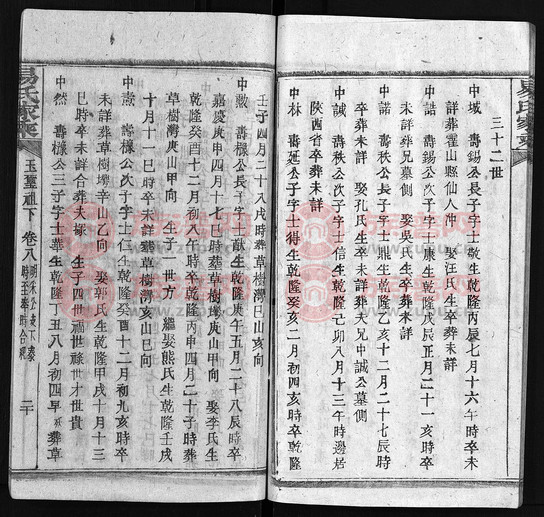 三十二世
中域 壽錫公長子字士敬生乾隆丙辰七月十六午時卒未
詳葬霍山縣仙人冲 娶汪氏生卒葬未詳
中諧 壽錫公次子字士康生乾隆戊辰正月二十一亥時卒
未詳葬兄墓側 娶吳氏生卒葬未詳
中誥 壽秩公長子字士鼎生乾隆乙亥十二月二十七辰時
卒葬未詳 娶孔氏生卒未詳葬夫兄中誠公墓側
中誠 壽秩公次子字士信生乾隆己卯八月十三午時遷居
陝西省卒葬未詳
中林 壽延公子字士得生乾隆癸亥二月初四亥時卒乾隆
壬子四月二十八戌時葬草樹灣巳山亥向
中勲 壽檺公長子字士猷生乾隆庚午五月二十八辰時卒
嘉慶庚申四月十七巳時葬草樹灣庚山甲向 娶李氏生
乾隆癸酉十二月初八午時卒乾隆丙申四月二十子時葬
草樹灣庚山甲向 生子一世方 繼娶熊氏生乾隆壬戌
十月十一巳時卒未詳葬草樹灣亥山巳向
中燾 壽檺公次子字士仁生乾隆癸酉十二月初九亥時卒
未詳葬草樹灣辛山乙向 娶郭氏生乾隆甲戌十月十三
巳時卒未詳合葬夫塚 生子四世禎世祿世才世貴
中然 壽檺公三子字士華生乾隆丁丑八月初四卒 葬草
易氏家乘
玉璽祖下 卷八
二十